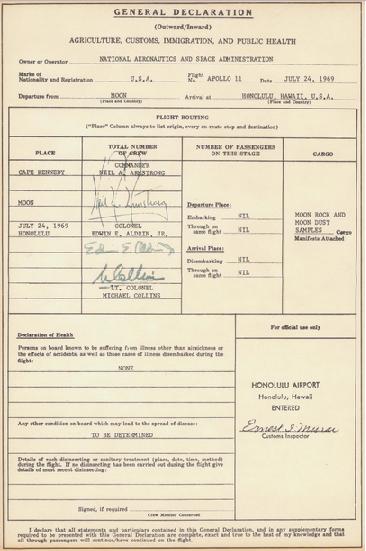 GENERAL DECLARATION
(Outward/Inward)
AGRICULTURE, CUSTOMS, IMMIGRATION, AND PUBLIC HEALTH
Owner or Operator NATIONAL AERONAUTICS AND SPACE ADMINISTRATION
Marks of Nationality and Registration U.S.A. Flight No. APOLLO 11 Date JULY 24, 1969
Departure from MOON Arrival at HONOLULU, HAWAII, U.S.A.
(Place and Country) (Place and Country)
FLIGHT ROUTING
("Place" Column always to list origin, every en route stop and destination)
PLACE
TOTAL NUMBER OF CREW
NUMBER OF PASSENGERS ON THIS STAGE
CARGO
CAPE KENNEDY
COMMANDER
NEIL A. ARMSTRONG
MOON
Neil A. Armstrong
JULY 24, 1969
HONOLULU
COLONEL
EDWIN E. ALDRIN, JR.
Edwin E. Aldrin
M Collins
LT. COLONEL
MICHAEL COLLINS
Departure Place:
Embarking NIL
Through on same flight NIL
Arrival Place:
Disembarking NIL
Through on same flight NIL
MOON ROCK AND
MOON DUST
SAMPLES Cargo
Manifests Attached
Declaration of Health
Persons on board known to be suffering from illness other than airsickness or
the effects of accidents, as well as those cases of illness disembarked during the
flight:
NONE
Any other condition on board which may lead to the spread of disease:
TO BE DETERMINED
Details of each disinsecting or sanitary treatment (place, date, time, method)
during the flight. If no disinsecting has been carried out during the flight give
details of most recent disinsecting:
Signed, if required
(Crew Member Concerned)
For official use only
HONOLULU AIRPORT
Honolulu, Hawaii
ENTERED
Ernest I. Murai
Customs Inspector
I declare that all statements and particulars contained in this General Declaration, and in any supplementary forms
required to be presented with this General Declaration are complete, exact and true to the best of my knowledge and that
all through passengers will continue/have continued on the flight.